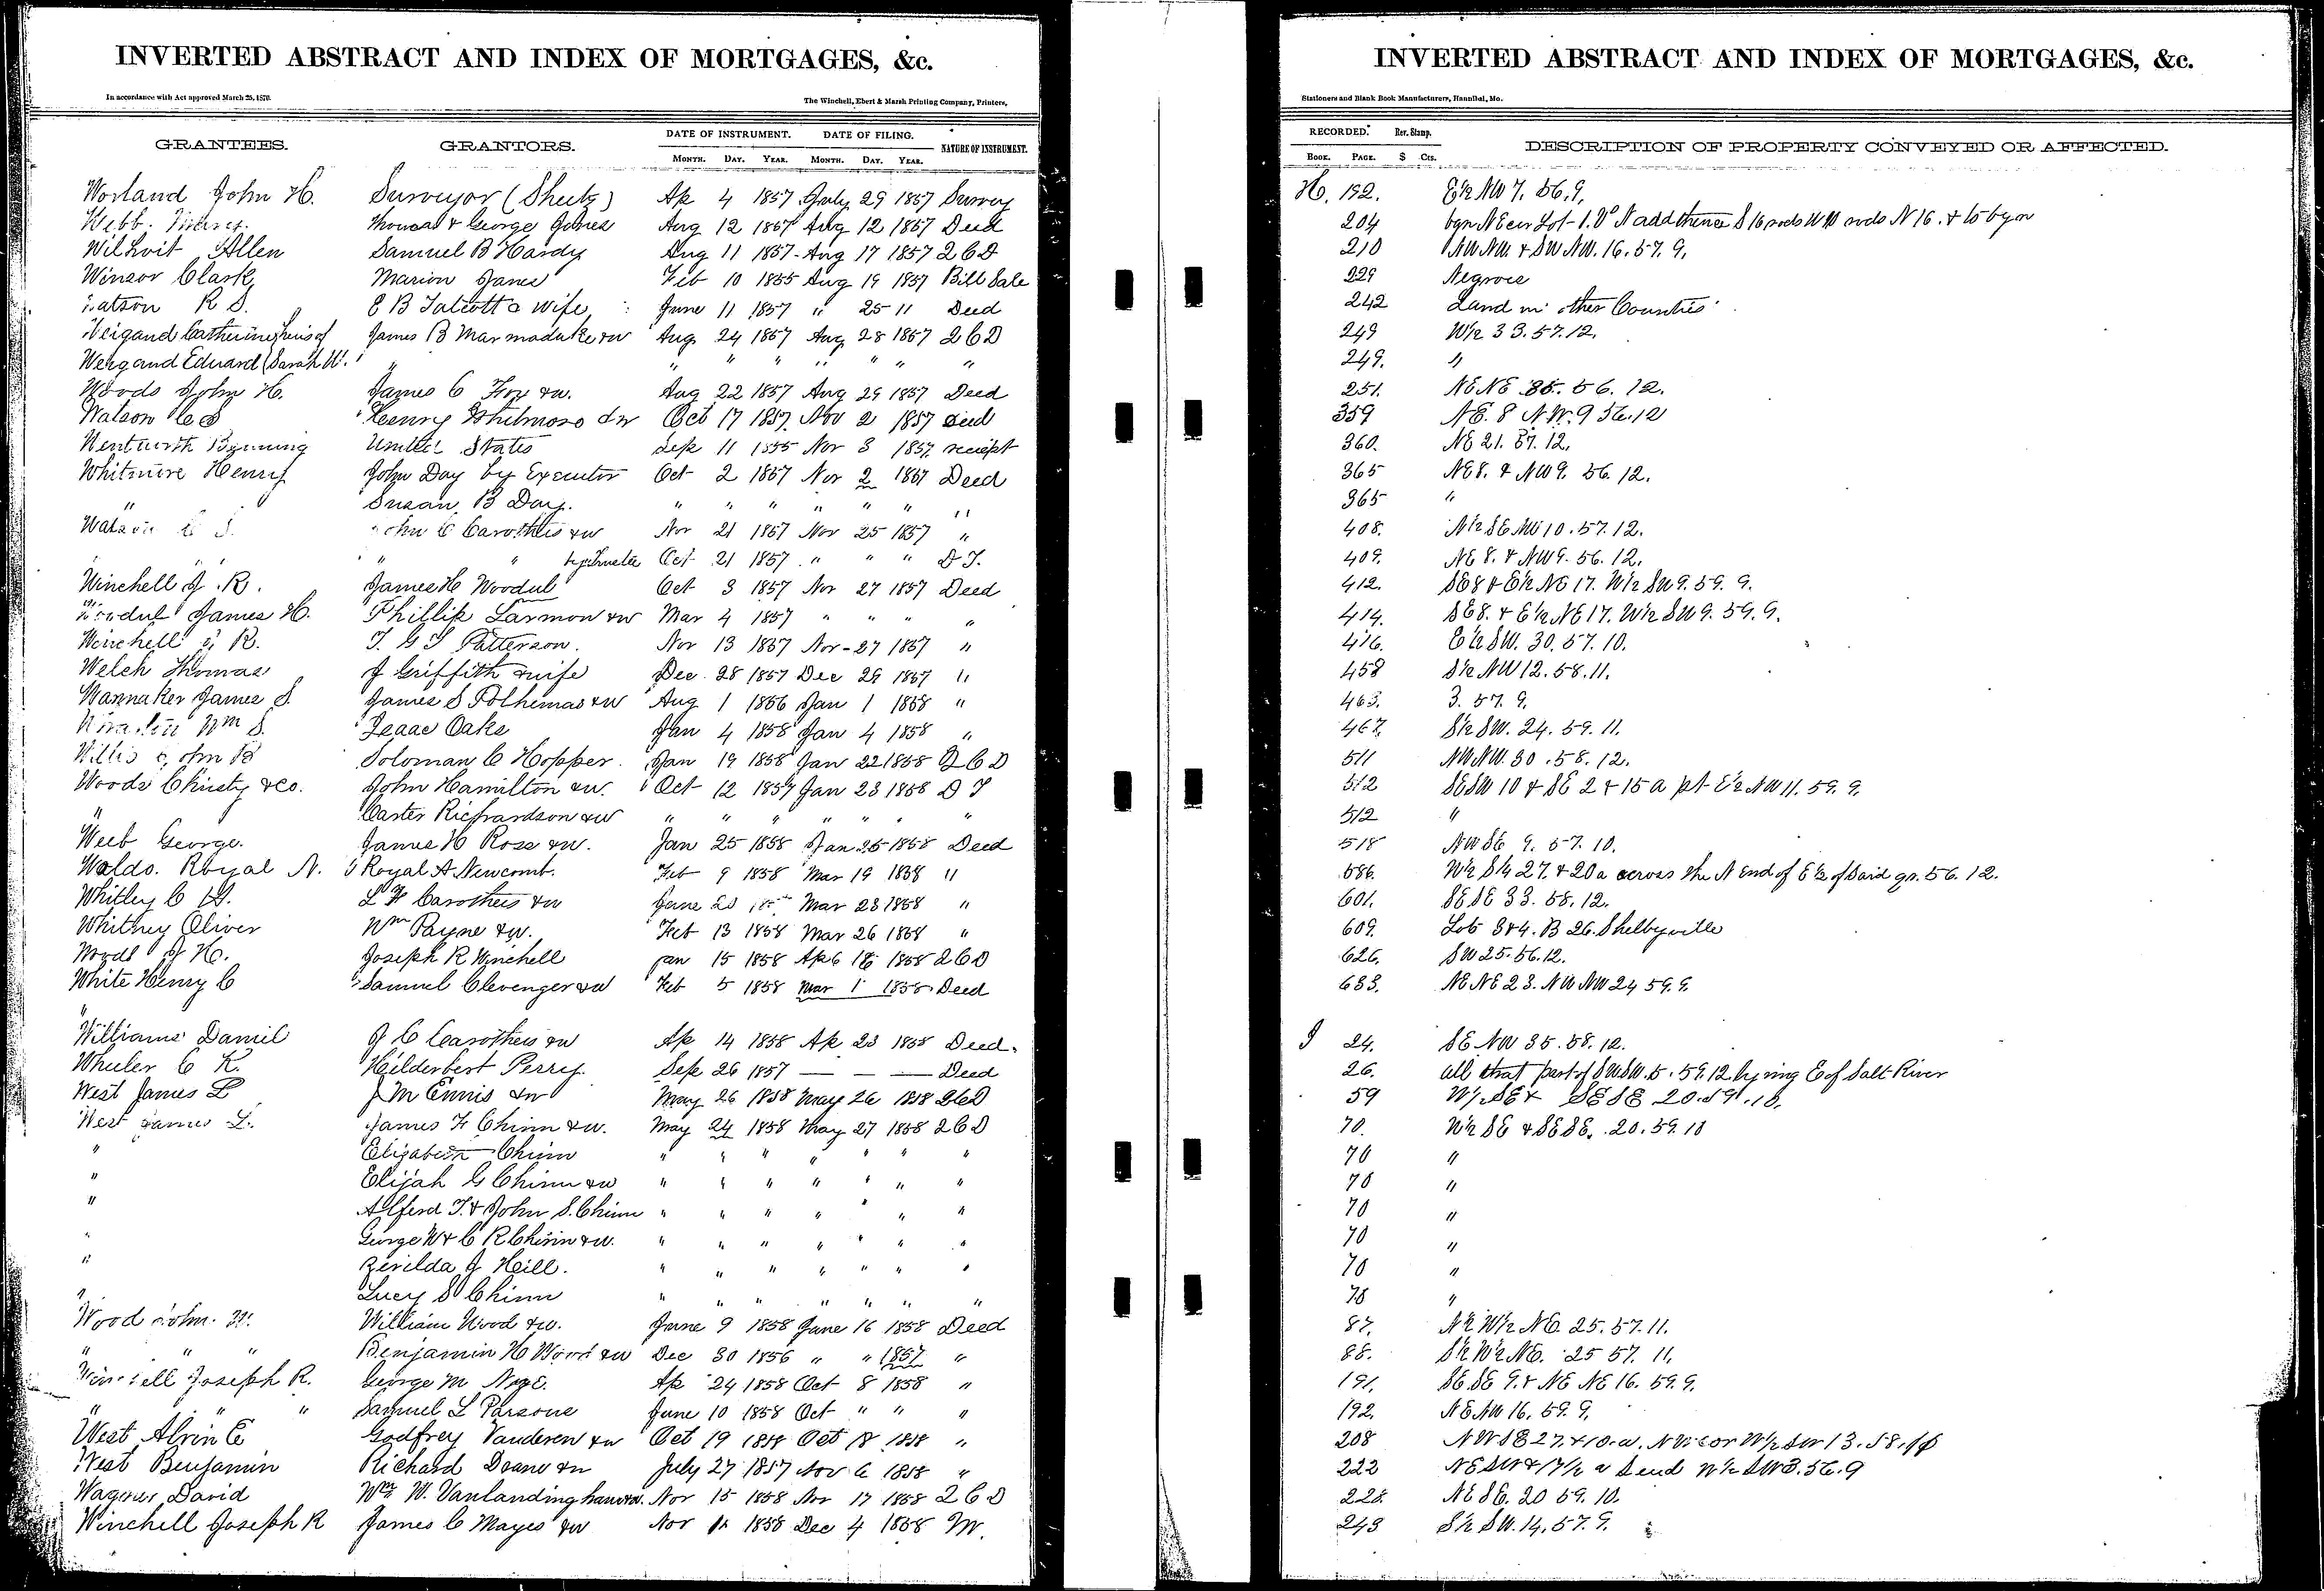 INVERTED ABSTRACT AND INDEX OF MORTGAGES, &c.
In accordance with Act approved March 25, 1870.
The Winchell, Ebert & Marsh Printing Company, Printers,
GRANTEES. GRANTORS. DATE OF INSTRUMENT. DATE OF FILING. NATURE OF INSTRUMENT.
MONTH. DAY. YEAR. MONTH. DAY. YEAR.
Worland John H. Surveyor (Sheetz) Ap 4 1857 July 29 1857 Survey
Webb. Thomas & George Jones Aug 12 1857 Aug 12 1857 Deed
Wilhoit Allen Samuel B Hardy Aug 11 1857 Aug 17 1857 2 6 D
Winsor Clark Marion Janes Feb 10 1855 Aug 19 1857 Bill Sale
Watson R S. E B Talcott & Wife June 11 1857 " 25 11 Deed
Weigand Catherine heirs of James B Marmaduke &w Aug 24 1857 Aug 28 1857 2 6 D
Weigand Eduard (Sarah W. " " " " " " " "
Woods John H. James C Fox &w. Aug 22 1857 Aug 29 1857 Deed
Watson C S Henry Whitmore &w Oct 17 1857 Nov 2 1857 Deed
Wentworth Byning United States Sep 11 1855 Nor 3 1857 reciept
Whitmire Henry John Day by Executor Oct 2 1857 Nor 2 1857 Deed
" Susan B Day. " " " " " " "
Watson C S. John C Carothers &w Nor 21 1857 Nor 25 1857 "
" " " " by trustee Oct 21 1857 " " " D T.
Winchell J. R. James H Woodul Oct 3 1857 Nor 27 1857 Deed
Woodul James H. Phillip Larmon &w Mar 4 1857 " " " "
Winchell J, R. T. G T Patterson. Nor 13 1857 Nor-27 1857 "
Welch Thomas J Griffith & wife Dec 28 1857 Dec 29 1857 "
Wannaker James S. James S Polhemas &w Aug 1 1856 Jan 1 1858 "
Wm S. Isaac Oake Jan 4 1858 Jan 4 1858 "
Willis John B Soloman C Hopper. Jan 19 1858 Jan 22 1858 2 6 D
Woods Christy &co. John Hamilton &w. Oct 12 1857 Jan 23 1858 D T
" Carter Richardson &w " " " " " " "
Weeb George. James H Ross &w. Jan 25 1858 Jan 25 1858 Deed
Waldo. Royal N. Royal A Newcomb. Feb 9 1858 Mar 19 1858 "
Whitley C H. L F Carothers &w June 23 Mar 23 1858 "
Whitney Oliver Wm Payne &w. Feb 13 1858 Mar 26 1858 "
Woods J H. Joseph R Winchell Jan 15 1858 Ap 6 1858 2 6 D
White Henry C Samuel Clevenger &w Feb 5 1858 Mar 1 1858 Deed
Williams Daniel J C Carothers &w Ap 14 1858 Ap 23 1858 Deed.
Wheeler C K. Hilderbert Perry. Sep 26 1857 — — — Deed
West James L J M Ennis &w May 26 1858 May 26 1858 2 6 D
West James L. James F Chinn &w. May 24 1858 May 27 1858 2 6 D
" Elizabeth Chinn " " " " " " "
" Elijah G Chinn &w " " " " " " "
" Alferd T. & John S. Chinn " " " " " " "
" George W & C R Chinn &w. " " " " " " "
" Zerilda J Hill. " " " " " " "
" Lucy S Chinn " " " " " " "
Wood John. W. William Wood &w. June 9 1858 June 16 1858 Deed
" " " Benjamin H Wood &w Dec 30 1856 " " 1857 "
Winchell Joseph R. George M Nye. Ap 24 1858 Oct 8 1858 "
" " " Samuel L Parsons June 10 1858 Oct " " "
West Alvin E Godfrey Vanderen &w Oct 19 1858 Oct 18 1858 "
West Benjamin Richard Doane &w July 27 1857 Nov 6 1858 "
Wagner David Wm W. Vanlandingham &w. Nor 15 1858 Nor 17 1858 2 6 D
Winchell Joseph R James C Mayes &w Nor 1858 Dec 4 1858 M.
INVERTED ABSTRACT AND INDEX OF MORTGAGES, &c.
Stationers and Blank Book Manufacturers, Hannibal, Mo.
RECORDED. Rev. Stamp. DESCRIPTION OF PROPERTY CONVEYED OR AFFECTED.
BOOK. PAGE. $ Cts.
H. 192. E½ NW 7. 56. 9.
204 bgn NE cor Lot 1. N add thence S 16 rods W 10 rods N 16. & to bgn
210 NW NW. & SW NW. 16. 57. 9.
229 Negroes
242 Land in other Counties
249 W½ 33. 57. 12.
249. "
251. NE NE 35. 56. 12.
359 NE. 8 N.W. 9 56. 12
360. NE 21. 57. 12.
365 NE 8. & NW 9. 56. 12.
365 "
408. N½ SE 10. 57. 12.
409. NE 8. & NW 9. 56. 12.
412. SE 8 & E½ NE 17. W½ SW 9. 59. 9.
414. SE 8. & E½ NE 17. W½ SW 9. 59. 9.
416. E½ SW. 30. 57. 10.
458 S½ NW 12. 58. 11.
463. 3. 57. 9.
467. S½ SW. 24. 59. 11.
511 NW NW. 30. 58. 12.
512 SE SW 10 & SE 2 & 15 a pt E½ NW 11. 59. 9.
512 "
518 NW SE 9. 57. 10.
586. W½ S½ 27. & 20 a across the N end of E½ of Said qr. 56. 12.
601. SE SE 33. 58. 12.
609. Lots 3 & 4. B 26. Shelbyville
626. SW 25. 56. 12.
683. NE NE 23. NW NW 24 59. 9.
I 24. SE NW 35. 58. 12.
26. all that part of SW SW. 5. 59. 12 lying E of Salt River
59 W½ SE & SE SE 20. 59. 10.
70. W½ SE & SE SE. 20. 59. 10
70 "
70 "
70 "
70 "
70 "
70 "
87. N½ W½ NE. 25. 57. 11.
88. S½ W½ NE. 25 57. 11.
191. SE SE 9. & NE NE 16. 59. 9.
192. NE NW 16. 59. 9.
208 NW SE 27. & 10. a. NW cor W½ SW 13. 58.
222 NE SW & 17½ a S end W½ SW 3. 56. 9
228. NE SE. 20 59. 10.
243 S½ SW. 14. 57. 9.